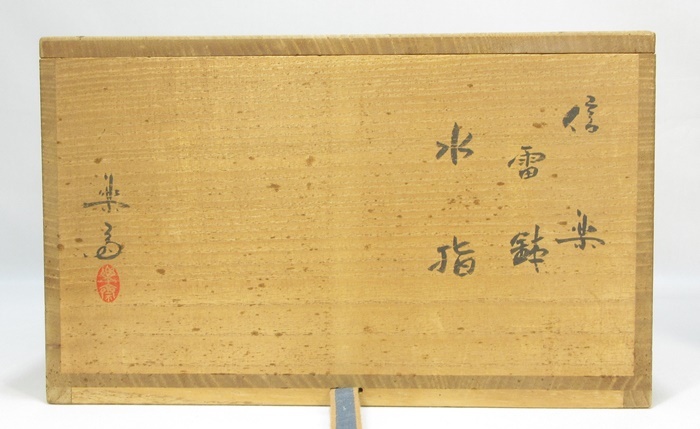 信楽
雷鉢
水指
楽斎